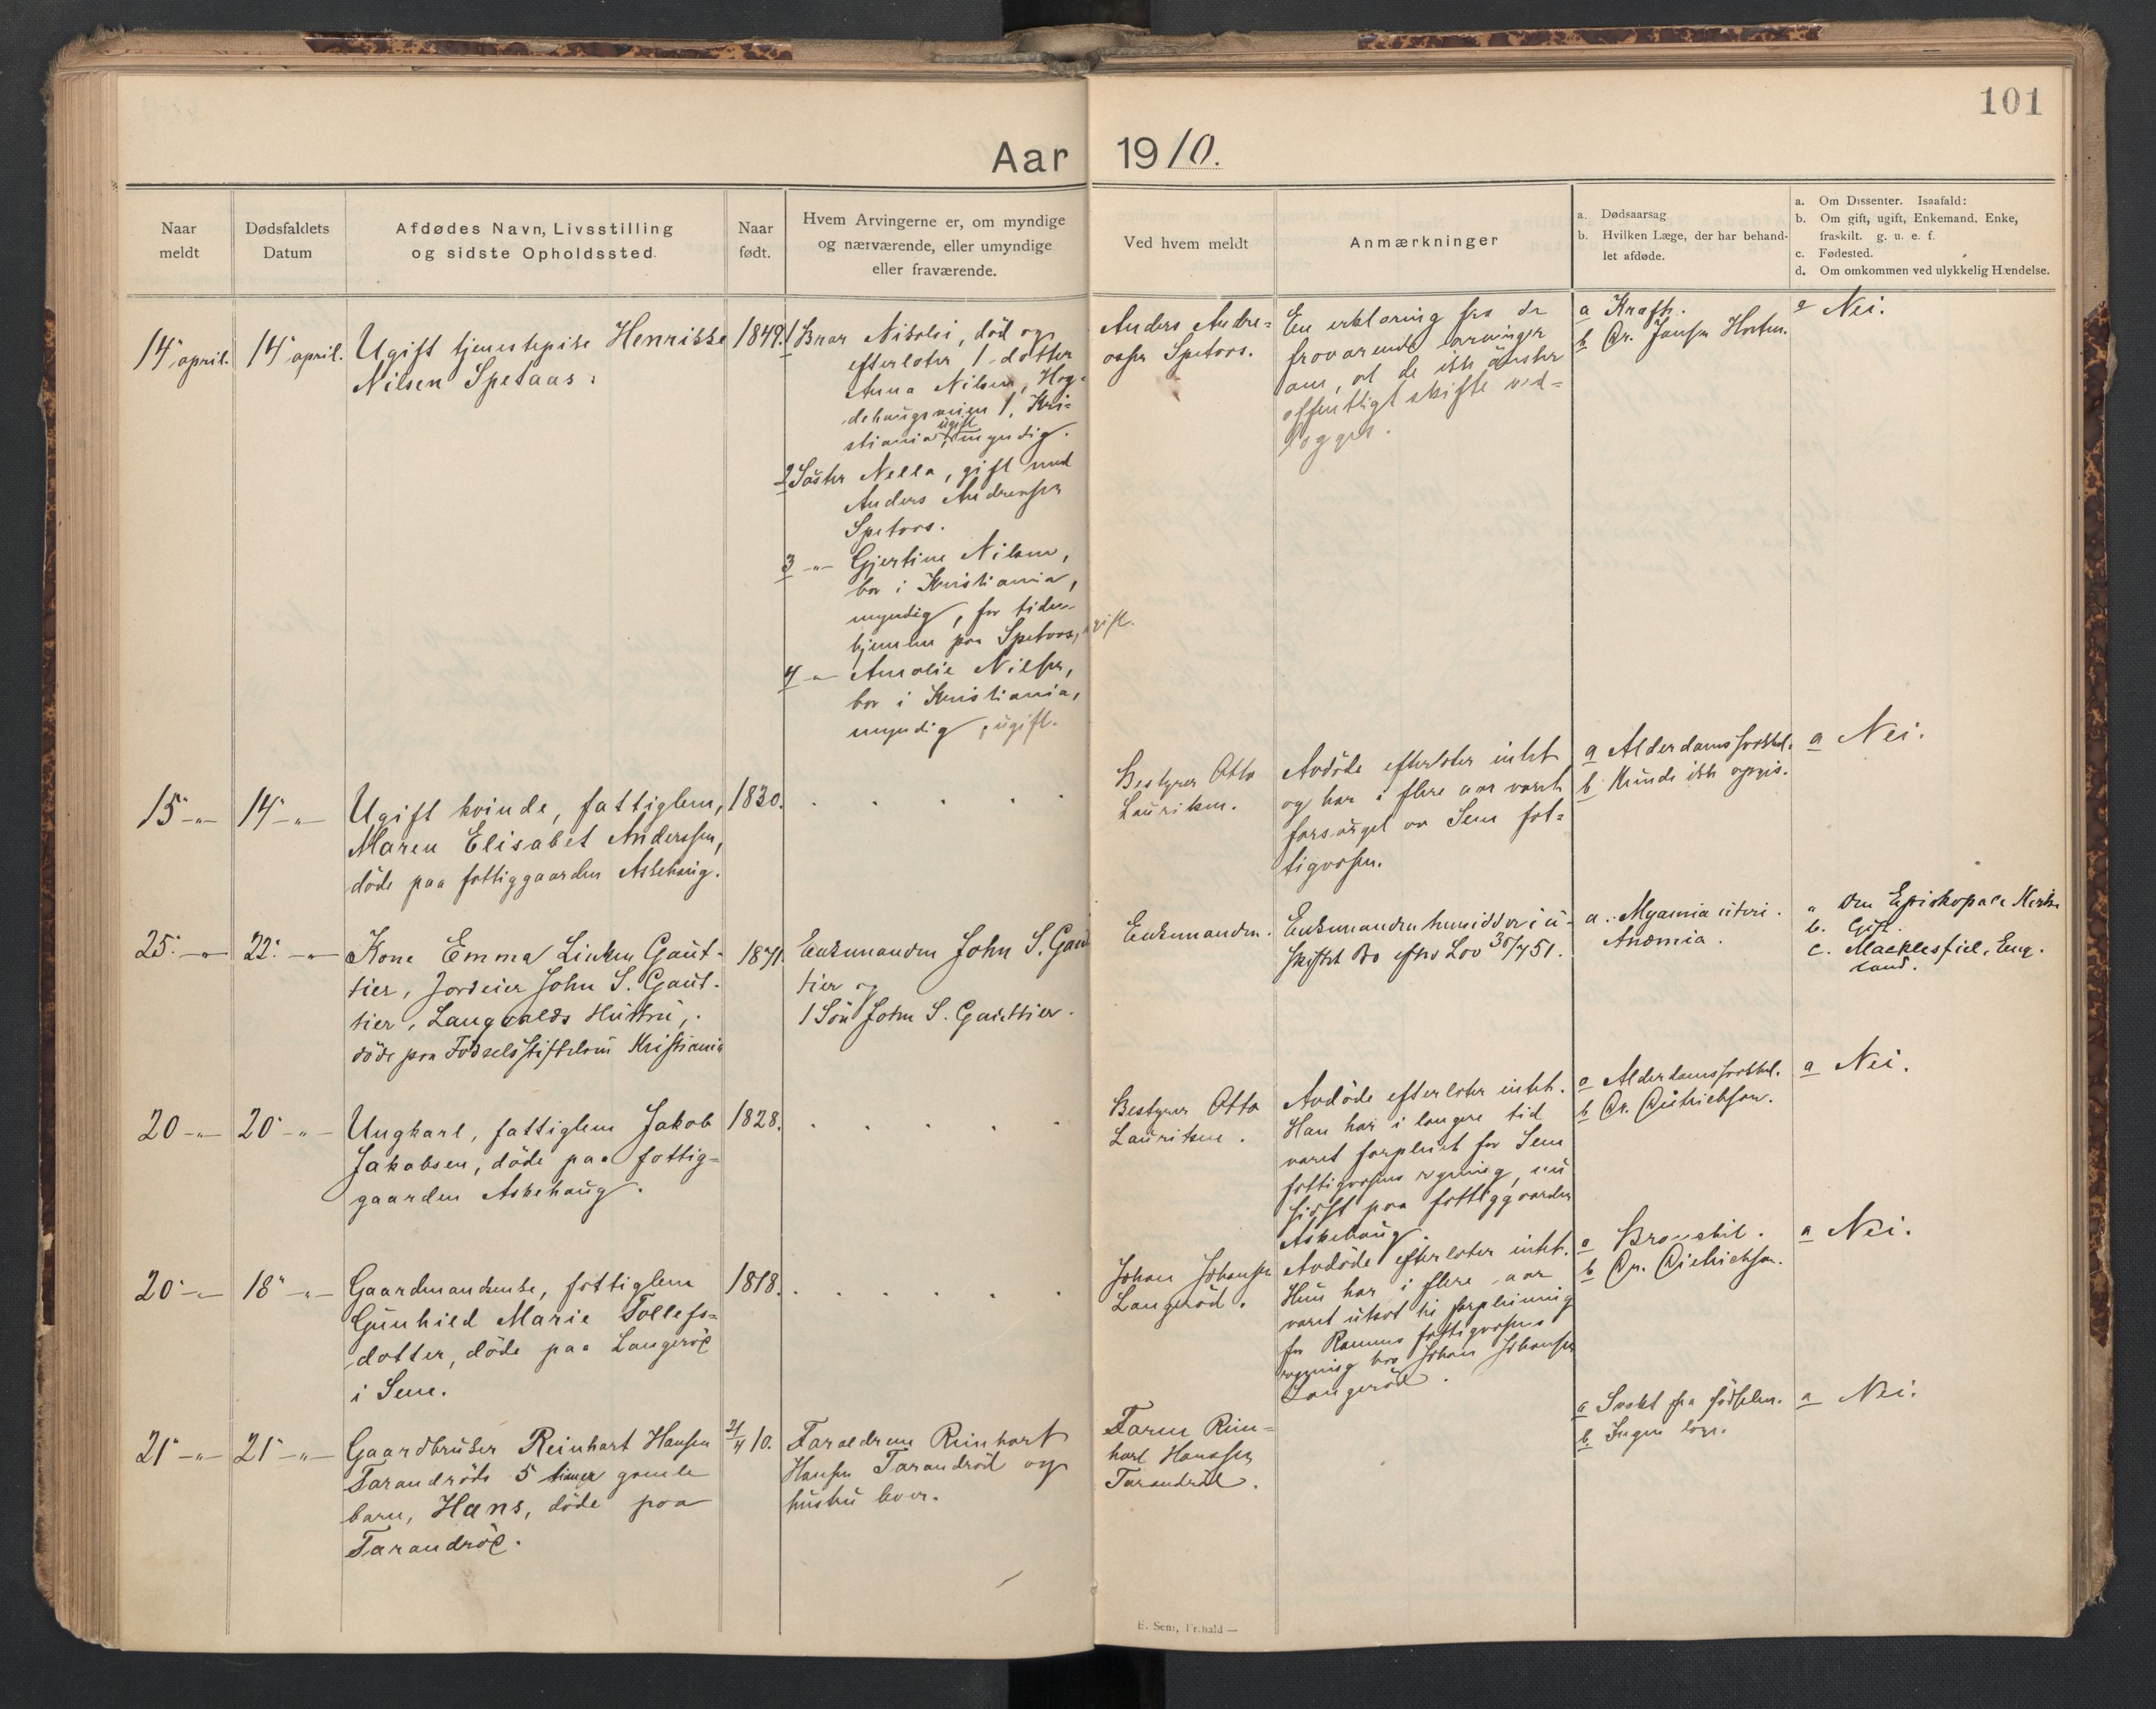 101
Aar 1910.
Naar
meldt
Dødsfaldets
Datum
Afdødes Navn, Livsstilling
og sidste Opholdssted.
Naar
født.
Hvem Arvingerne er, om myndige
og nærværende, eller umyndige
eller fraværende.
Ved hvem meldt
Anmærkninger
a. Dødsaarsag
b. Hvilken Læge, der har behand-
let afdøde.
a. Om Dissenter. Isaafald:
b. Om gift, ugift, Enkemand, Enke,
fraskilt. g. u. e. f.
c. Fødested.
d. Om omkommen ved ulykkelig Hændelse.
14 april.
14 april.
Ugift tjenestepike Henrikke
Nilsen Spetaas.
1849.
1 Bror Nikolai, död og
efterlater 1 datter
Anna Nilsen, Heg-
dehaugsveien 1, Kri-
stiania, ugift myndig.
2 Söster Nella, gift med
Anders Andreassen
Spetaas.
3 -"- Gjertine Nilsen,
bor i Kristiania,
myndig, for tiden
hjemme paa Spetaas, ugift.
4 -"- Amalie Nilsen,
bor i Kristiania,
myndig, ugift.
Anders Andre-
assen Spetaas.
En erklæring fra de
fraværende arvinger
om, at de ikke önsker
offentligt skifte ved-
lægges.
a Kræft.
b Dr. Jansen Horten.
a Nei.
15 -"-
14 -"-
Ugift kvinde, fattiglem,
Maren Elisabet Anderssen,
döde paa fattiggaarden Askehaug.
1830.
Bestyrer Otto
Lauritsen.
Avdöde efterlater intet
og har i flere aar været
forsörget av Sem fat-
tigvæsen.
a Alderdomssvakhet.
b Kunde ikke opgis.
a Nei.
25. -"-
22. -"-
Kone Emma Gaut-
tier, Jordeier John S. Gaut-
tier, Langvalds Hustru,
döde paa Födselsstiftelsen Kristiania
1871.
Enkemanden John S. Gaut
tier og
1 Sön John S. Gauttier.
Enkemanden.
Enkemanden hensidder i u-
skiftet Bo efter Lov 30/7 51.
a. Myomia uteri.
Anæmia.
a Den Episkopale Kirke
b. Gift.
c. Macklesfiel, Eng-
land.
20 -"-
20 -"-
Ungkarl, fattiglem Jakob
Jakobsen, döde paa fattig-
gaarden Askehaug.
1828.
Bestyrer Otto
Lauritsen.
Avdöde efterlater intet.
Han har i længere tid
været forpleiet for Sem
fattigvæsens regning, nu
sidst paa fattiggaarden
Askehaug.
a Alderdomssvakhet.
b Dr. Dietrichson.
a Nei.
20 -"-
18 -"-
Gaardmandsenke, fattiglem
Gunhild Marie Tollefs-
datter, döde paa Langeröd
i Sem.
1818.
Johan Johansen
Langeröd.
Avdöde efterlater intet.
Hun har i flere aar
været utsat til forpleining
for Ramnes fattigvæsens
regning hos Johan Johansen
Langeröd.
a Bronchit.
b Dr. Dietrichson.
a Nei.
21 -"-
21 -"-
Gaardbruker Reinhart Hansen
Tarandröds 5 timer gamle
barn, Hans, döde paa
Tarandröd.
21/4 10.
Forældrene Reinhart
Hansen Tarandröd og
hustru lever.
Faren Rein-
hart Hanssen
Tarandröd.
a Svakt fra födselen.
b Ingen læge.
a Nei.
E. Sem, Fr.hald —